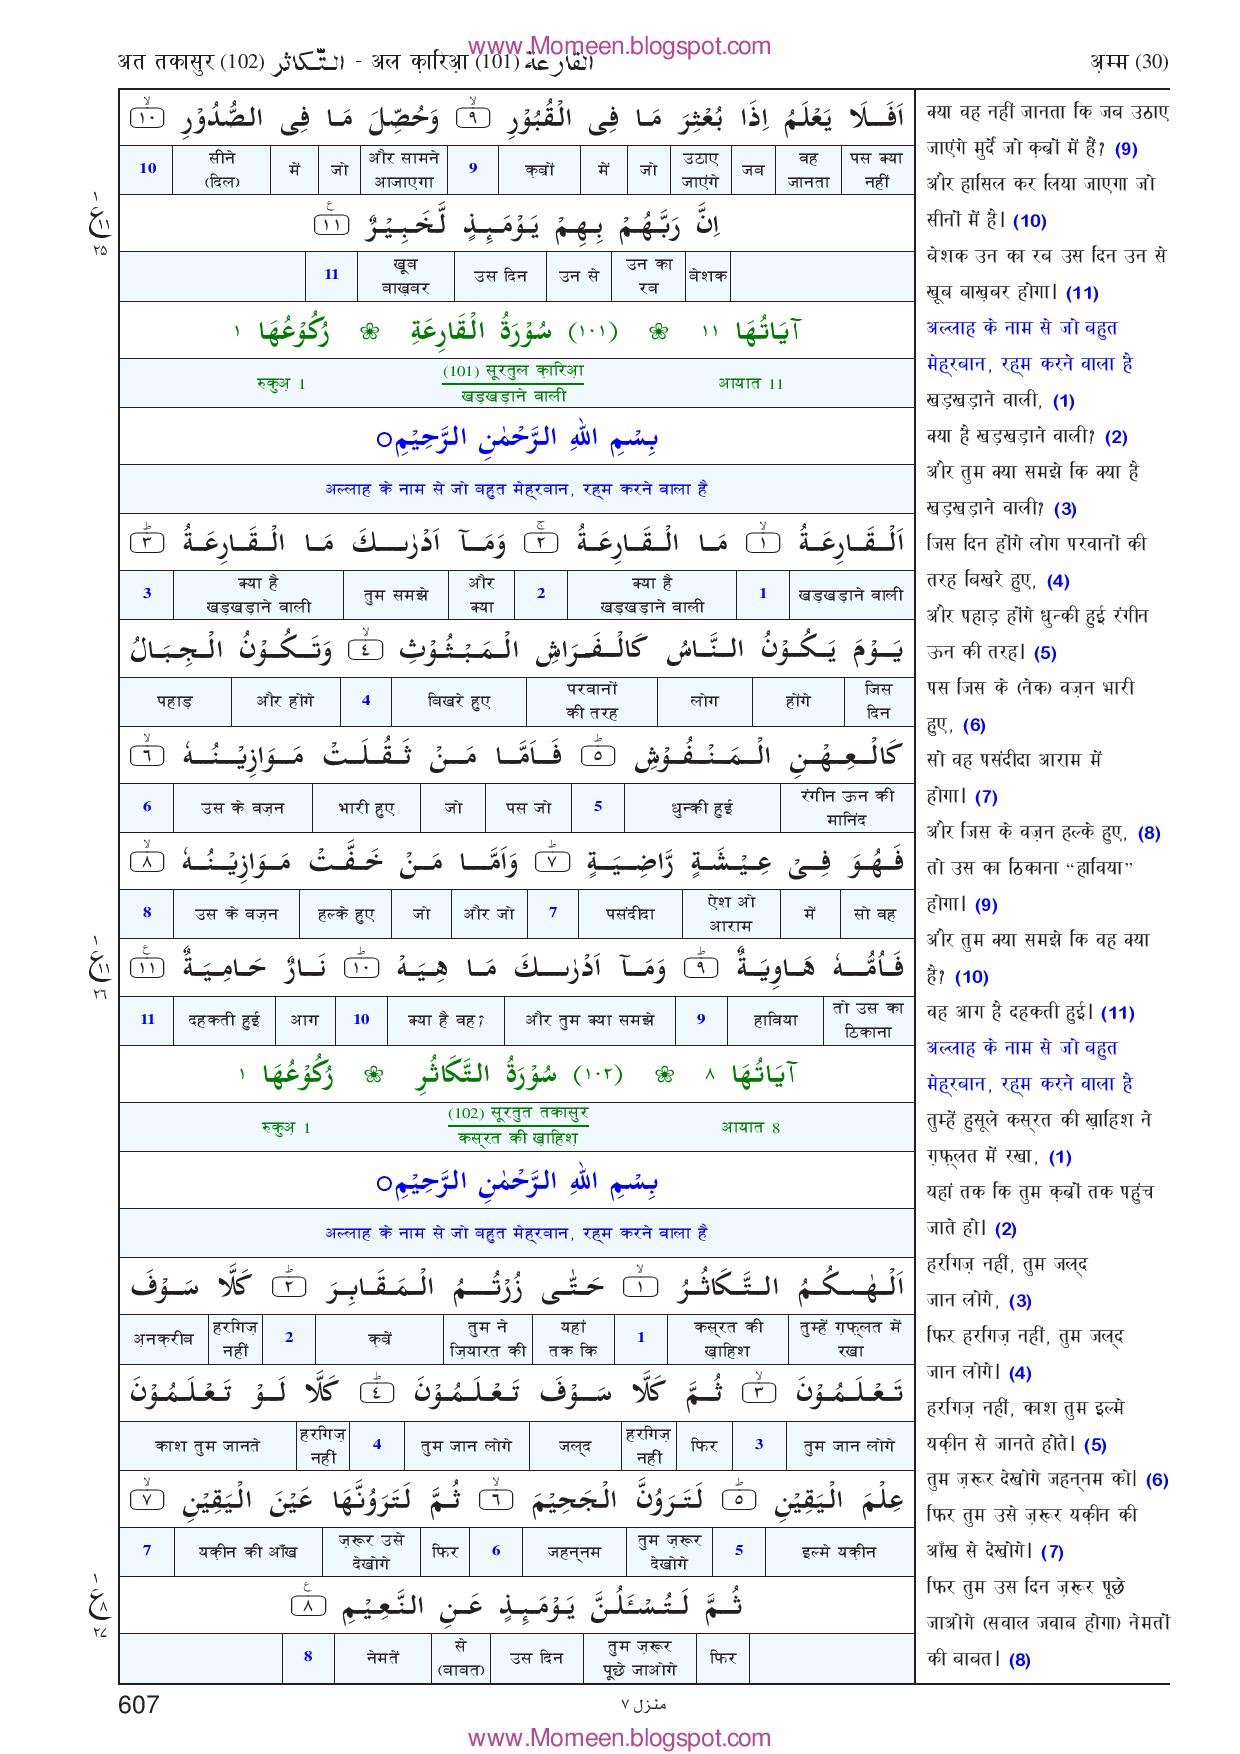 www.Momeen.blogspot.com
अत तकासुर (102) التّكاثر - अल क़ारिआ़ (101) القارعة
अ़म्म (30)
اَفَلَا يَعْلَمُ اِذَا بُعْثِرَ مَا فِى الْقُبُوْرِ ۹ وَحُصِّلَ مَا فِى الصُّدُوْرِ ۱۰
पस क्या नहीं | वह जानता | जब | उठाए जाएंगे | जो | में | क़ब्रों | 9 | और सामने आजाएगा | जो | में | सीने (दिल) | 10
اِنَّ رَبَّهُمْ بِهِمْ يَوْمَئِذٍ لَّخَبِيْرٌ ۱۱
बेशक | उन का रब | उन से | उस दिन | खूब बाख़बर | 11
آيَاتُهَا ۱۱ ❀ (۱۰۱) سُوْرَةُ الْقَارِعَةِ ❀ رُكُوْعُهَا ۱
रुकुअ़ 1
(101) सूरतुल क़ारिआ़
खड़खड़ाने वाली
आयात 11
بِسْمِ اللّٰهِ الرَّحْمٰنِ الرَّحِيْمِ○
अल्लाह के नाम से जो बहुत मेह्रबान, रह्म करने वाला है
اَلْقَارِعَةُ ۱ مَا الْقَارِعَةُ ۲ وَمَآ اَدْرٰىكَ مَا الْقَارِعَةُ ۳
खड़खड़ाने वाली | 1 | क्या है खड़खड़ाने वाली | 2 | और क्या | तुम समझे | क्या है खड़खड़ाने वाली | 3
يَوْمَ يَكُوْنُ النَّاسُ كَالْفَرَاشِ الْمَبْثُوْثِ ٤ وَتَكُوْنُ الْجِبَالُ
जिस दिन | होंगे | लोग | परवानों की तरह | बिखरे हुए | 4 | और होंगे | पहाड़
كَالْعِهْنِ الْمَنْفُوْشِ ٥ فَاَمَّا مَنْ ثَقُلَتْ مَوَازِيْنُهٗ ٦
रंगीन ऊन की मानिंद | धुन्की हुई | 5 | पस जो | जो | भारी हुए | उस के वज़न | 6
فَهُوَ فِىْ عِيْشَةٍ رَّاضِيَةٍ ۷ وَاَمَّا مَنْ خَفَّتْ مَوَازِيْنُهٗ ۸
सो वह | में | ऐश ओ आराम | पसंदीदा | 7 | और जो | जो | हल्के हुए | उस के वज़न | 8
فَاُمُّهٗ هَاوِيَةٌ ۹ وَمَآ اَدْرٰىكَ مَا هِيَهْ ۱۰ نَارٌ حَامِيَةٌ ۱۱
तो उस का ठिकाना | हाविया | 9 | और तुम क्या समझे | क्या है वह? | 10 | आग | दहकती हुई | 11
آيَاتُهَا ۸ ❀ (۱۰۲) سُوْرَةُ التَّكَاثُرِ ❀ رُكُوْعُهَا ۱
रुकुअ़ 1
(102) सूरतुत तकासुर
कस्रत की ख़ाहिश
आयात 8
بِسْمِ اللّٰهِ الرَّحْمٰنِ الرَّحِيْمِ○
अल्लाह के नाम से जो बहुत मेह्रबान, रह्म करने वाला है
اَلْهٰىكُمُ التَّكَاثُرُ ۱ حَتّٰى زُرْتُمُ الْمَقَابِرَ ۲ كَلَّا سَوْفَ
तुम्हें ग़फ़्लत में रखा | कस्रत की ख़ाहिश | 1 | यहां तक कि | तुम ने ज़ियारत की | क़ब्रें | 2 | हरगिज़ नहीं | अ़नक़रीब
تَعْلَمُوْنَ ۳ ثُمَّ كَلَّا سَوْفَ تَعْلَمُوْنَ ٤ كَلَّا لَوْ تَعْلَمُوْنَ
तुम जान लोगे | 3 | फिर | हरगिज़ नहीं | जल्द | तुम जान लोगे | 4 | हरगिज़ नहीं | काश तुम जानते
عِلْمَ الْيَقِيْنِ ٥ لَتَرَوُنَّ الْجَحِيْمَ ٦ ثُمَّ لَتَرَوُنَّهَا عَيْنَ الْيَقِيْنِ ۷
इल्मे यक़ीन | 5 | तुम ज़रूर देखोगे | जहन्नम | 6 | फिर | ज़रूर उसे देखोगे | यक़ीन की आँख | 7
ثُمَّ لَتُسْـَٔلُنَّ يَوْمَئِذٍ عَنِ النَّعِيْمِ ۸
फिर | तुम ज़रूर पूछे जाओगे | उस दिन | से (बाबत) | नेमतें | 8
क्या वह नहीं जानता कि जब उठाए
जाएंगे मुर्दे जो क़ब्रों में हैं? (9)
और हासिल कर लिया जाएगा जो
सीनों में है। (10)
बेशक उन का रब उस दिन उन से
खूब बाख़बर होगा। (11)
अल्लाह के नाम से जो बहुत
मेह्रबान, रह्म करने वाला है
खड़खड़ाने वाली, (1)
क्या है खड़खड़ाने वाली? (2)
और तुम क्या समझे कि क्या है
खड़खड़ाने वाली? (3)
जिस दिन होंगे लोग परवानों की
तरह बिखरे हुए, (4)
और पहाड़ होंगे धुन्की हुई रंगीन
ऊन की तरह। (5)
पस जिस के (नेक) वज़न भारी
हुए, (6)
सो वह पसंदीदा आराम में
होगा। (7)
और जिस के वज़न हल्के हुए, (8)
तो उस का ठिकाना “हाविया”
होगा। (9)
और तुम क्या समझे कि वह क्या
है? (10)
वह आग है दहकती हुई। (11)
अल्लाह के नाम से जो बहुत
मेह्रबान, रह्म करने वाला है
तुम्हें हुसूले कस्रत की ख़ाहिश ने
ग़फ़्लत में रखा, (1)
यहां तक कि तुम क़ब्रों तक पहुंच
जाते हो। (2)
हरगिज़ नहीं, तुम जल्द
जान लोगे, (3)
फिर हरगिज़ नहीं, तुम जल्द
जान लोगे। (4)
हरगिज़ नहीं, काश तुम इल्मे
यक़ीन से जानते होते। (5)
तुम ज़रूर देखोगे जहन्नम को। (6)
फिर तुम उसे ज़रूर यक़ीन की
आँख से देखोगे। (7)
फिर तुम उस दिन ज़रूर पूछे
जाओगे (सवाल जवाब होगा) नेमतों
की बाबत। (8)
۱
ع ۱۱
۲٥
۱
ع ۱۱
۲٦
۱
ع ۸
۲۷
607
منزل ۷
www.Momeen.blogspot.com